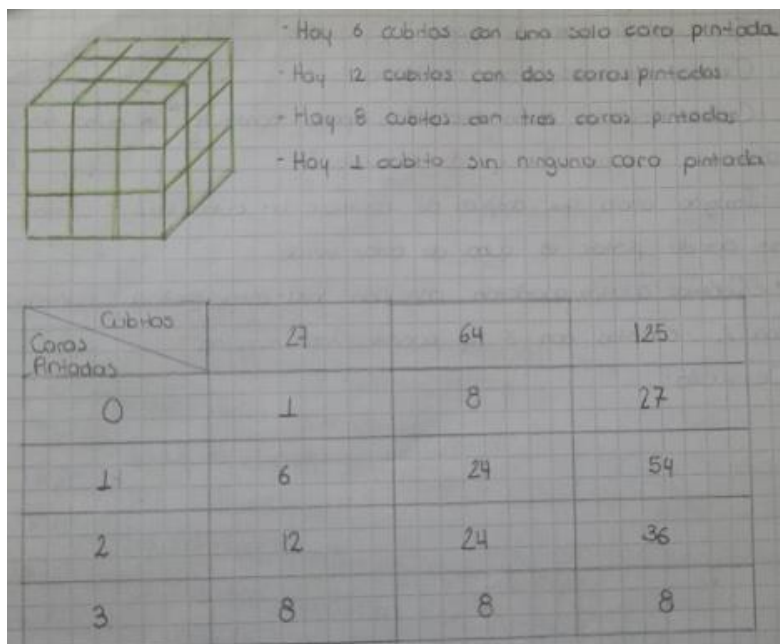 - Hay 6 cubitos con una sola cara pintada
- Hay 12 cubitos con dos caras pintadas
- Hay 8 cubitos con tres caras pintadas
- Hay 1 cubito sin ninguna cara pintada
Cubitos
Caras
Pintadas
27 64 125
0 1 8 27
1 6 24 54
2 12 24 36
3 8 8 8